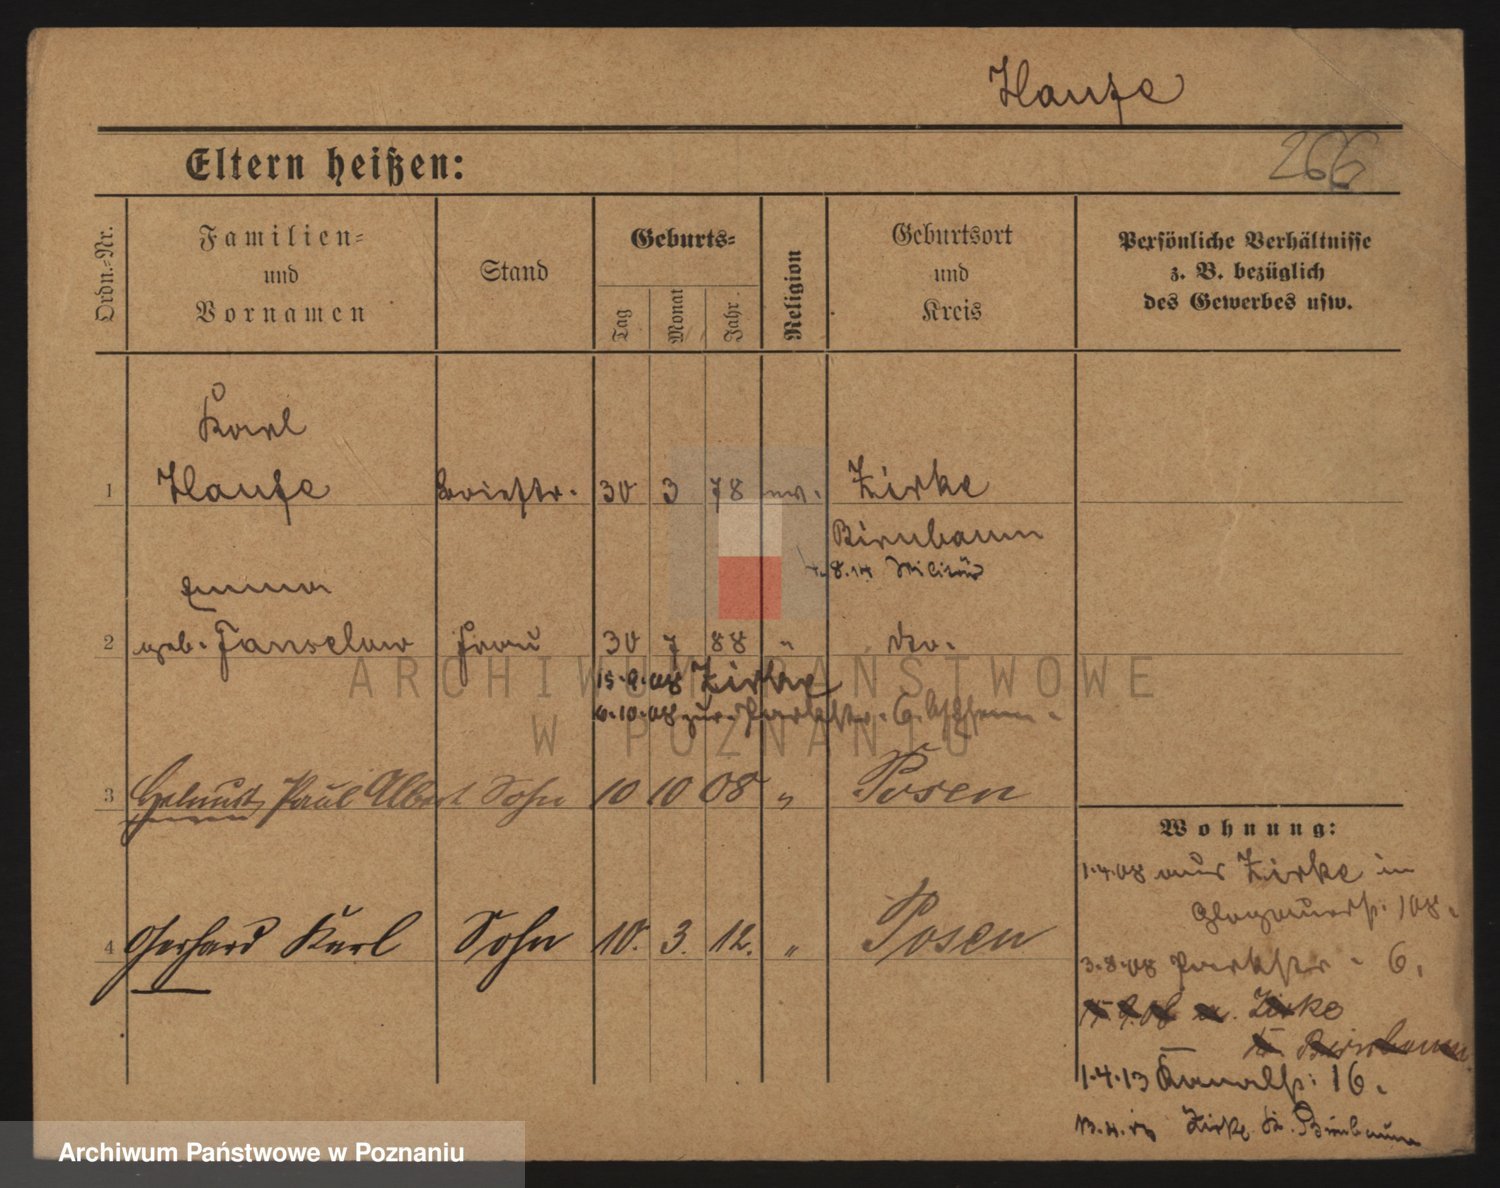 Haufe
Eltern heißen:
266
Ordn.-Nr.
Familien-
und
Vornamen
Stand
Geburts-
Tag
Monat
Jahr
Religion
Geburtsort
und
Kreis
Persönliche Verhältnisse
z. B. bezüglich
des Gewerbes usw.
Karl
1 Haufe Brieftr. 30 3 78 ev. Zirke
Birnbaum
8.14 Militär
Emma
2 geb. Fanselow Frau 30 7 88 " do.
15.9.08 Zirke
6.10.08 zur. Parkstr. 6
3 Helmut Paul Albert Sohn 10 10 08 " Posen
4 Gerhard Karl Sohn 10. 3. 12. " Posen
Wohnung:
1.4.08 aus Zirke in
Glogauerst. 108.
3.8.08 Parkstr. 6.
15.9.08 n. Zirke
Kr. Birnbaum
1.4.13 Kanalst. 16.
Zirke Kr. Birnbaum
ARCHIWUM PAŃSTWOWE
W POZNANIU
Archiwum Państwowe w Poznaniu